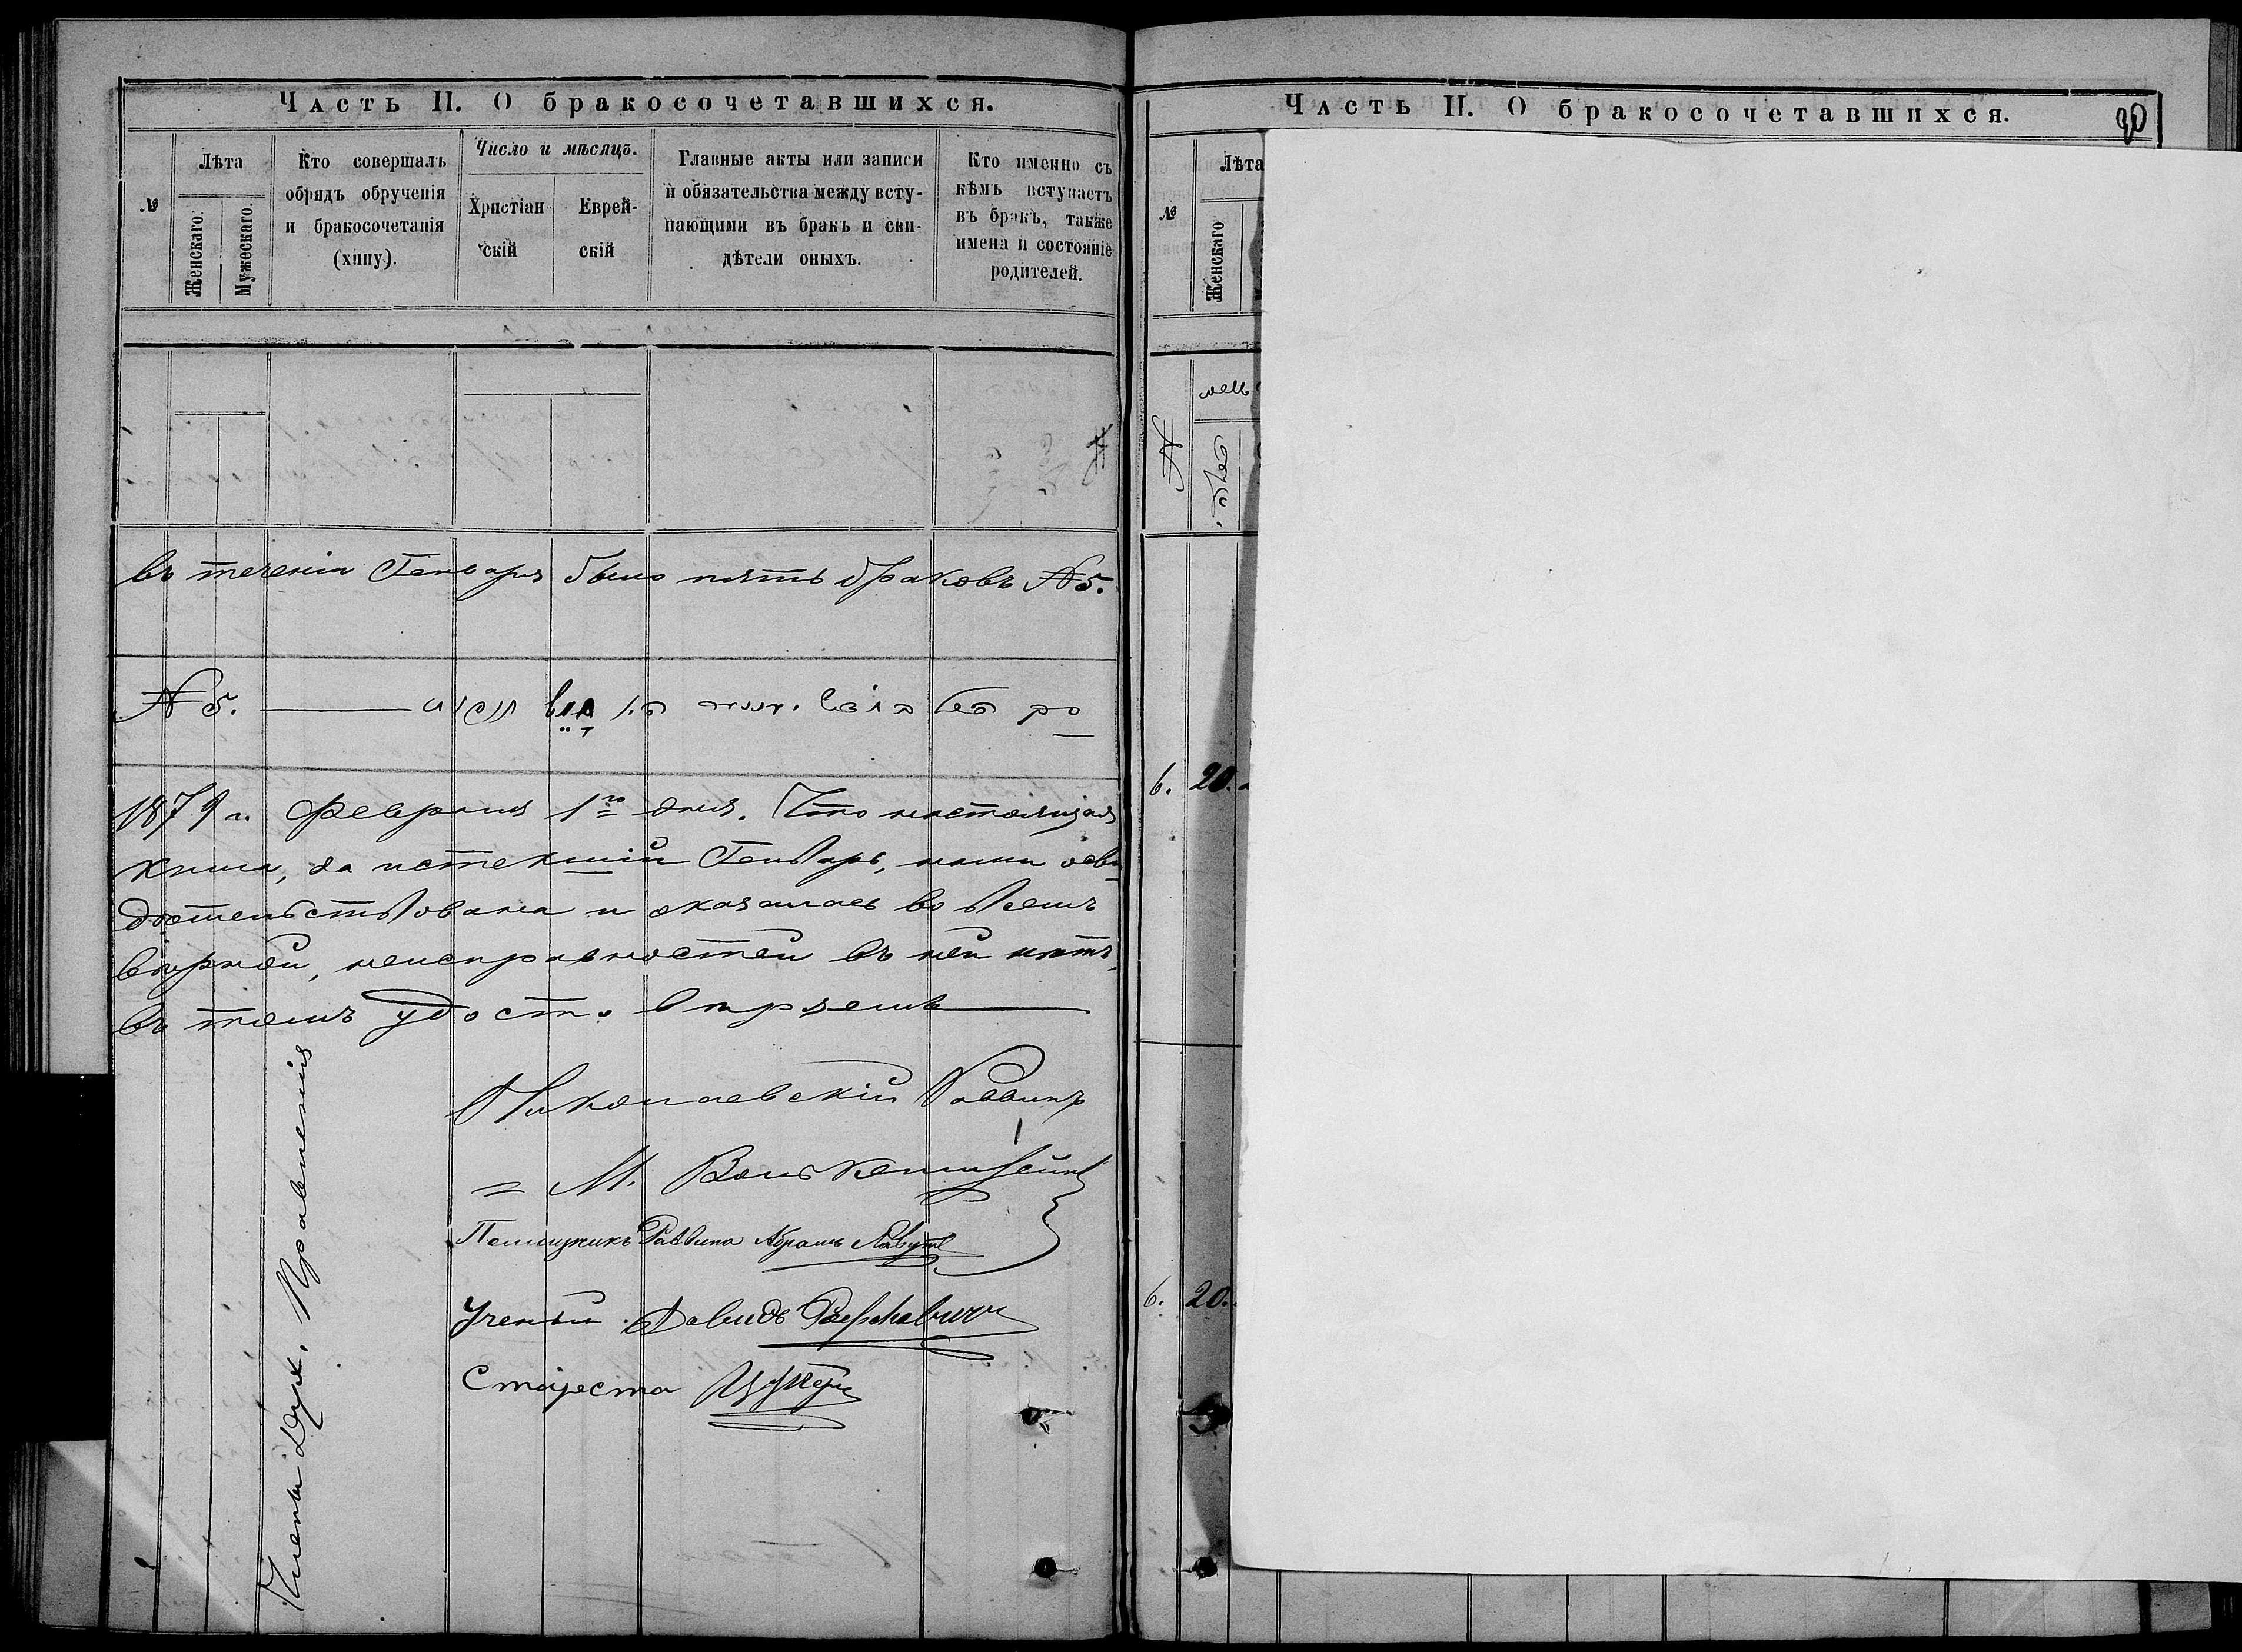 Часть II. О бракосочетавшихся.
№
Лѣта
Женскаго.
Мужескаго.
Кто совершалъ
обрядъ обрученія
и бракосочетанія
(хупу).
Число и мѣсяцъ.
Христіан-
скій
Еврей-
скій
Главные акты или записи
и обязательства между всту-
пающими въ бракъ и сви-
дѣтели оныхъ.
Кто именно съ
кѣмъ вступаетъ
въ бракъ, также
имена и состояніе
родителей.
въ теченіи Генваря было пять браковъ № 5.
№ 5.
1879 г. Февраля 1го дня. Что настоящая
книга, за истекшій Генварь, нами осви
дѣтельствована и оказалась во всемъ
вѣрной, неисправностей въ ней нѣтъ,
въ томъ удостовѣряемъ
Николаевскій Раввинъ
М.
Помощникъ Раввина Абрамъ
Ученый Давидъ
Староста
Члены Дух. Правленія
Часть II. О бракосочетавшихся.
№
Лѣта
Женскаго
№
6. 20.
6. 20.